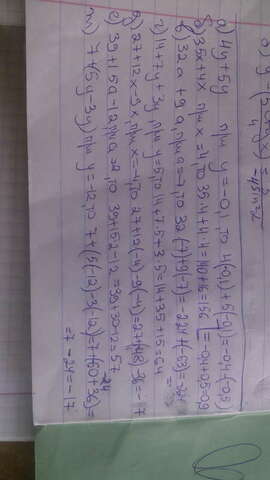 а) 4y + 5y при y = -0,1, то 4(-0,1) + 5(-0,1) = -0,4 - (-0,5)
= -0,4 + 0,5 = 0,9
б) 35x + 4x при x = 4, то 35·4 + 4·4 = 140 + 16 = 156
в) 32a + 9a, при a = -7, то 32·(-7) + 9(-7) = -224 + (-63) =
г) 14 + 7y + 3y, при y = 5, то 14 + 7·5 + 3·5 = 14 + 35 + 15 = 64
д) 27 + 12x - 9x, при x = -4, то 27 + 12·(-4) - 9(-4) = 27 + (-48)
е) 39 + 15a - 12, при a = 2, то 39 + 15·2 - 12 = 39 + 30 - 12 = 57
ж) 7 + (5y - 3y) при y = -12, то 7 + (5·(-12) - 3·(-12)) = 7 + (-60 + 36) =
= 7 - 24 = -17